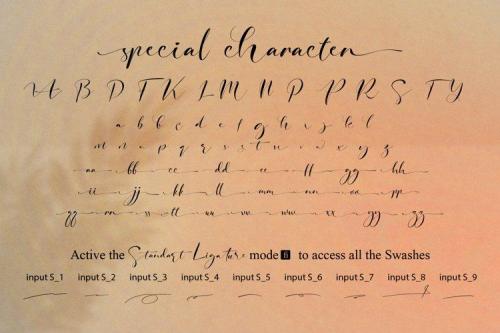 special character
A B D F K L M N P P R S T Y
a b b c d e f g h i j k l
m n o p q r s t u v w x y z
aa bb cc dd ee ff gg hh
ii jj kk ll mm nn oo pp
qq rr ss tt uu vv ww xx yy zz
Active the Standart Ligature mode fi to access all the Swashes
input S_1 input S_2 input S_3 input S_4 input S_5 input S_6 input S_7 input S_8 input S_9